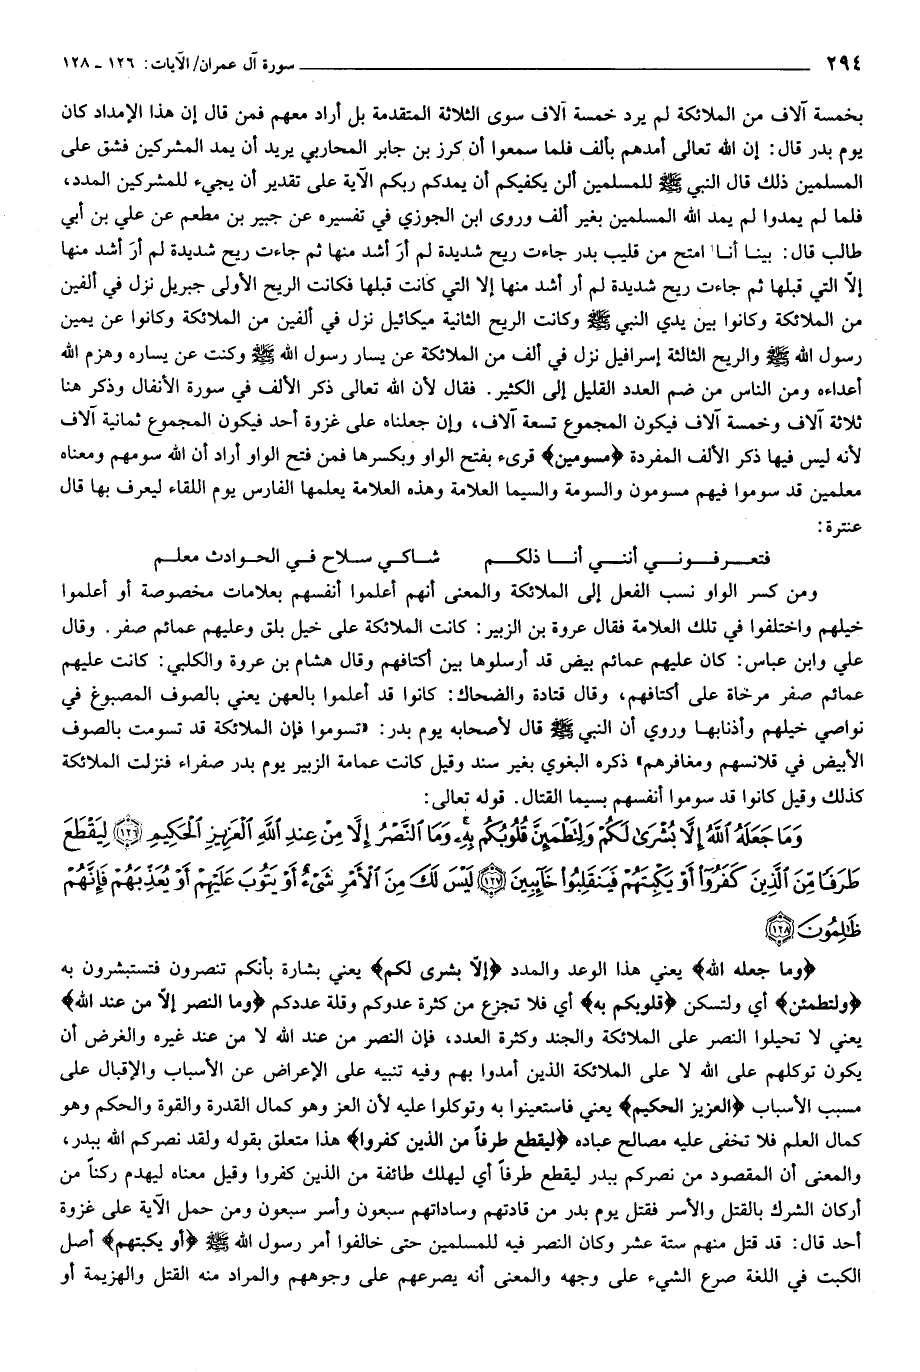 ٢٩٤ سورة آل عمران/ الآيات: ١٢٦ ـ ١٢٨
بخمسة آلاف من الملائكة لم يرد خمسة آلاف سوى الثلاثة المتقدمة بل أراد معهم فمن قال إن هذا الإمداد كان
يوم بدر قال: إن الله تعالى أمدهم بألف فلما سمعوا أن كرز بن جابر المحاربي يريد أن يمد المشركين فشق على
المسلمين ذلك قال النبي ﷺ للمسلمين ألن يكفيكم أن يمدكم ربكم الآية على تقدير أن يجيء للمشركين المدد،
فلما لم يمدوا لم يمد الله المسلمين بغير ألف وروى ابن الجوزي في تفسيره عن جبير بن مطعم عن علي بن أبي
طالب قال: بينا أنا امتح من قليب بدر جاءت ريح شديدة لم أرَ أشد منها ثم جاءت ريح شديدة لم أرَ أشد منها
إلاّ التي قبلها ثم جاءت ريح شديدة لم أر أشد منها إلا التي كانت قبلها فكانت الريح الأولى جبريل نزل في ألفين
من الملائكة وكانوا بين يدي النبي ﷺ وكانت الريح الثانية ميكائيل نزل في ألفين من الملائكة وكانوا عن يمين
رسول الله ﷺ والريح الثالثة إسرافيل نزل في ألف من الملائكة عن يسار رسول الله ﷺ وكنت عن يساره وهزم الله
أعداءه ومن الناس من ضم العدد القليل إلى الكثير. فقال لأن الله تعالى ذكر الألف في سورة الأنفال وذكر هنا
ثلاثة آلاف وخمسة آلاف فيكون المجموع تسعة آلاف، وإن جعلناه على غزوة أحد فيكون المجموع ثمانية آلاف
لأنه ليس فيها ذكر الألف المفردة ﴿مسومين﴾ قرىء بفتح الواو وبكسرها فمن فتح الواو أراد أن الله سومهم ومعناه
معلمين قد سوموا فهم مسومون والسومة والسيما العلامة وهذه العلامة يعلمها الفارس يوم اللقاء ليعرف بها قال
عنترة:
فتعـرفـونـي أننـي أنـا ذلكـم شـاكي سـلاح فـي الحـوادث معلـم
ومن كسر الواو نسب الفعل إلى الملائكة والمعنى أنهم أعلموا أنفسهم بعلامات مخصوصة أو أعلموا
خيلهم واختلفوا في تلك العلامة فقال عروة بن الزبير: كانت الملائكة على خيل بلق وعليهم عمائم صفر. وقال
علي وابن عباس: كان عليهم عمائم بيض قد أرسلوها بين أكتافهم وقال هشام بن عروة والكلبي: كانت عليهم
عمائم صفر مرخاة على أكتافهم، وقال قتادة والضحاك: كانوا قد أعلموا بالعهن يعني بالصوف المصبوغ في
نواصي خيلهم وأذنابها وروي أن النبي ﷺ قال لأصحابه يوم بدر: «تسوموا فإن الملائكة قد تسومت بالصوف
الأبيض في قلانسهم ومغافرهم» ذكره البغوي بغير سند وقيل كانت عمامة الزبير يوم بدر صفراء فنزلت الملائكة
كذلك وقيل كانوا قد سوموا أنفسهم بسيما القتال. قوله تعالى:
وَمَا جَعَلَهُ اللَّهُ إِلَّا بُشْرَىٰ لَكُمْ وَلِتَطْمَئِنَّ قُلُوبُكُم بِهِۦ وَمَا النَّصْرُ إِلَّا مِنْ عِندِ اللَّهِ الْعَزِيزِ الْحَكِيمِ ﴿١٢٦﴾ لِيَقْطَعَ
طَرَفًا مِّنَ الَّذِينَ كَفَرُوٓا أَوْ يَكْبِتَهُمْ فَيَنقَلِبُوا خَآئِبِينَ ﴿١٢٧﴾ لَيْسَ لَكَ مِنَ الْأَمْرِ شَىْءٌ أَوْ يَتُوبَ عَلَيْهِمْ أَوْ يُعَذِّبَهُمْ فَإِنَّهُمْ
ظَٰلِمُونَ ﴿١٢٨﴾
﴿وما جعله الله﴾ يعني هذا الوعد والمدد ﴿إلاّ بشرى لكم﴾ يعني بشارة بأنكم تنصرون فتستبشرون به
﴿ولتطمئن﴾ أي ولتسكن ﴿قلوبكم به﴾ أي فلا تجزع من كثرة عدوكم وقلة عددكم ﴿وما النصر إلاّ من عند الله﴾
يعني لا تحيلوا النصر على الملائكة والجند وكثرة العدد، فإن النصر من عند الله لا من عند غيره والغرض أن
يكون توكلهم على الله لا على الملائكة الذين أمدوا بهم وفيه تنبيه على الإعراض عن الأسباب والإقبال على
مسبب الأسباب ﴿العزيز الحكيم﴾ يعني فاستعينوا به وتوكلوا عليه لأن العز وهو كمال القدرة والقوة والحكم وهو
كمال العلم فلا تخفى عليه مصالح عباده ﴿ليقطع طرفاً من الذين كفروا﴾ هذا متعلق بقوله ولقد نصركم الله ببدر،
والمعنى أن المقصود من نصركم ببدر ليقطع طرفاً أي ليهلك طائفة من الذين كفروا وقيل معناه ليهدم ركناً من
أركان الشرك بالقتل والأسر فقتل يوم بدر من قادتهم وساداتهم سبعون وأسر سبعون ومن حمل الآية على غزوة
أحد قال: قد قتل منهم ستة عشر وكان النصر فيه للمسلمين حتى خالفوا أمر رسول الله ﷺ ﴿أو يكبتهم﴾ أصل
الكبت في اللغة صرع الشيء على وجهه والمعنى أنه يصرعهم على وجوههم والمراد منه القتل والهزيمة أو